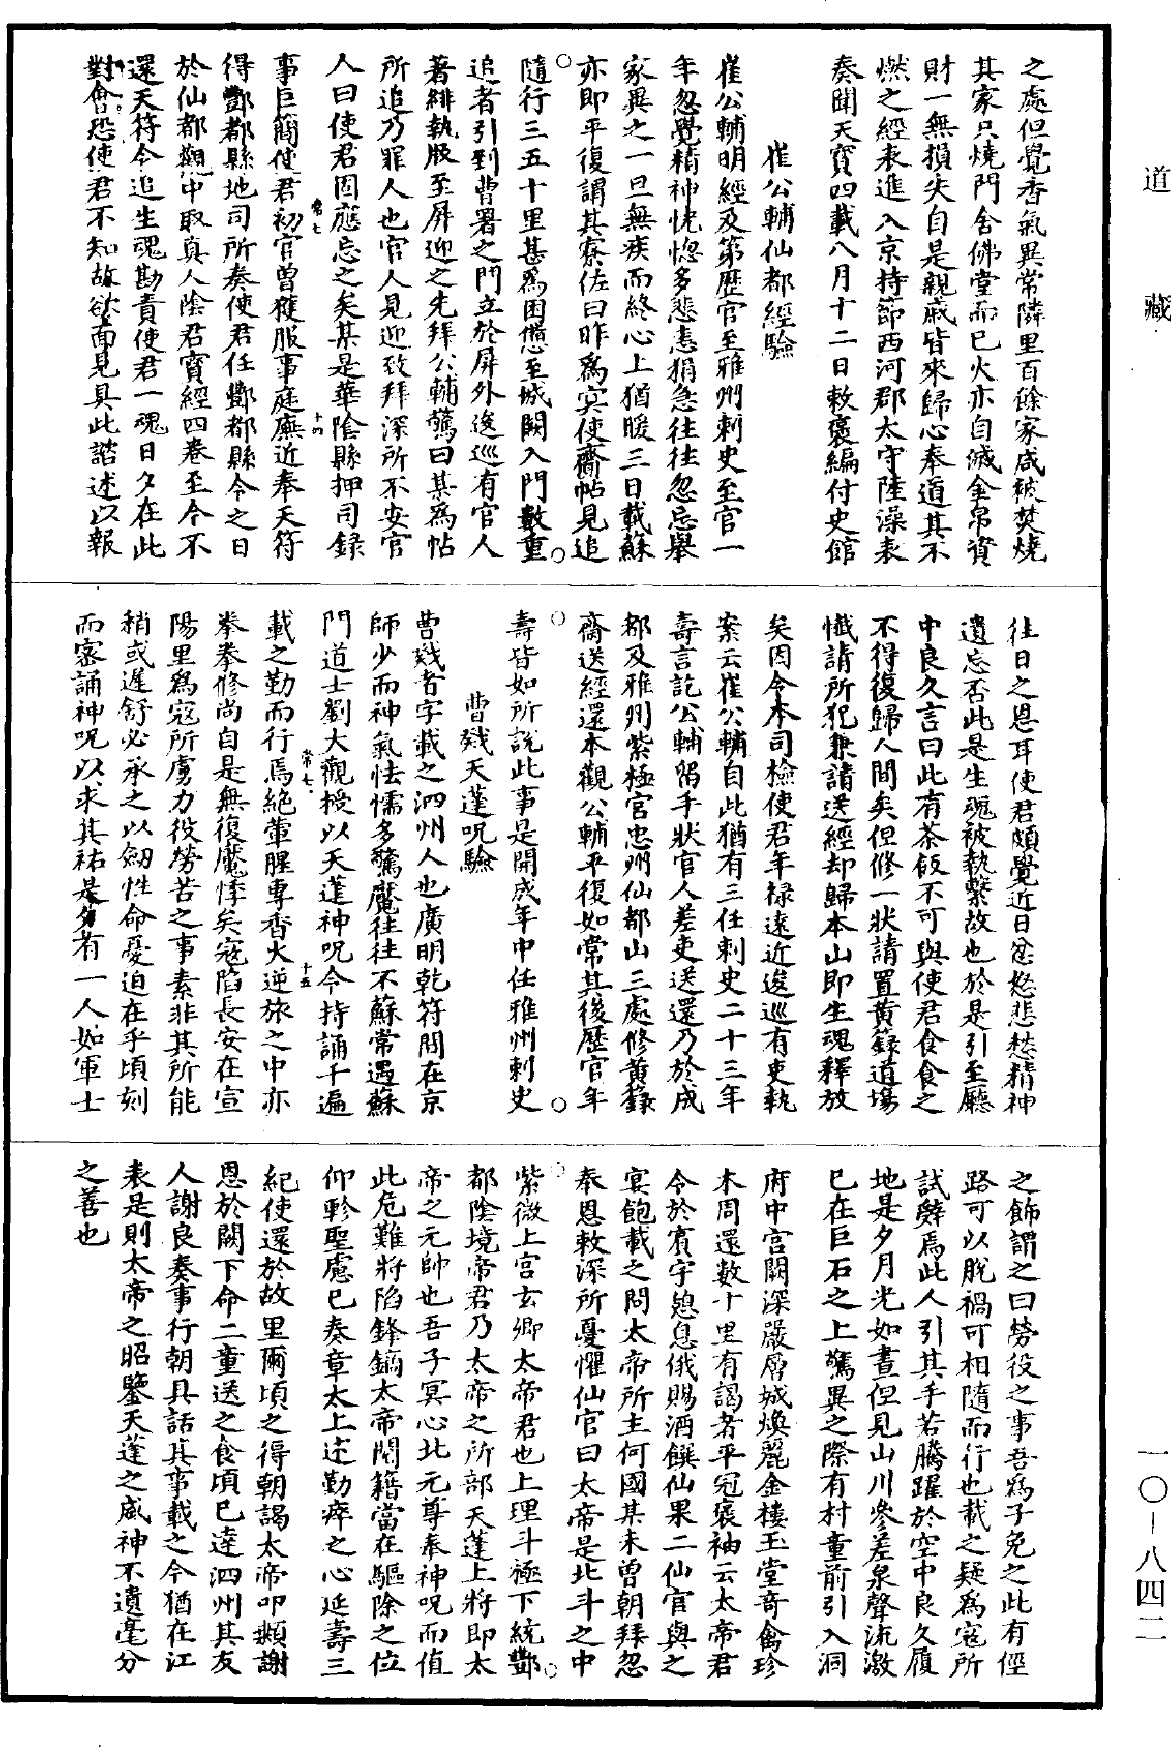 道藏
之處但覺香氣異常隣里百餘家咸被焚燒
其家只燒門舍佛堂而已火亦自滅金帛資
財一無損失自是親戚皆來歸心奉道其不
燃之經表進入京持節西河郡太守陸澡表
奏聞天寶四載八月十二日敕褒編付史館
崔公輔仙都經驗
崔公輔明經及第歷官至雅州刺史至官一
年忽覺精神恍惚多悲恚狷急往往忽忘舉
家異之一旦無疾而終心上猶暖三日載蘇
亦即平復謂其寮佐曰昨爲冥使齎帖見追
隨行三五十里甚爲困憊至城闕入門數重
追者引到曹署之門立於屏外逡巡有官人
著緋執版至屏迎之先拜公輔驚曰某爲帖
所追乃罪人也官人見迎致拜深所不安官
人曰使君固應忘之矣某是華陰縣押司錄
常七
十四
事巨簡使君初官曾獲服事庭廡近奉天符
得酆都縣地司所奏使君任酆都縣令之日
於仙都觀中取真人陰君寶經四卷至今不
還天符令追生魂勘責使君一魂日夕在此
對會恐使君不知故欲面見具此諮述以報
往日之恩耳使君頗覺近日忿怒悲愁精神
遺忘否此是生魂被執繫故也於是引至廳
中良久言曰此有茶飯不可與使君食食之
不得復歸人間矣但修一狀請置黄籙道場
懺請所犯兼請送經却歸本山即生魂釋放
矣因令本司檢使君年禄遠近逡巡有吏執
案云崔公輔自此猶有三任刺史二十三年
壽言訖公輔留手狀官人差吏送還乃於成
都及雅州紫極宮忠州仙都山三處修黄籙
齋送經還本觀公輔平復如常其後歷官年
壽皆如所說此事是開成年中任雅州刺史
曹戣天蓬呪驗
曹戣者字載之泗州人也廣明乾符間在京
師少而神氣怯懦多驚魘往往不蘇常遇蘇
門道士劉大觀授以天蓬神呪令持誦千遍
常七
十五
載之勤而行焉絶葷腥專香火逆旅之中亦
拳拳修尚自是無復魘悸矣寇陷長安在宣
陽里爲寇所虜力役勞苦之事素非其所能
稍或遲舒必承之以劒性命憂迫在乎頃刻
而密誦神呪以求其祐是夕有一人如軍士
之飾謂之曰勞役之事吾爲子免之此有徑
路可以脱禍可相隨而行也載之疑爲寇所
試辭焉此人引其手若騰躍於空中良久履
地是夕月光如晝但見山川參差泉聲流激
已在巨石之上驚異之際有村童前引入洞
府中宮闕深嚴層城煥麗金樓玉堂奇禽珍
木周還數十里有謁者平冠褒袖云太帝君
令於賓宇憩息俄賜酒饌仙果二仙官與之
宴飽載之問太帝所主何國某未曾朝拜忽
奉恩敕深所憂懼仙官曰太帝是北斗之中
紫微上宮玄卿太帝君也上理斗極下統酆
都陰境帝君乃太帝之所部天蓬上將即太
帝之元帥也吾子冥心北元尊奉神呪而值
此危難將陷鋒鏑太帝閱籍當在驅除之位
仰軫聖慮已奏章太上述勤瘁之心延壽三
紀使還於故里爾頃之得朝謁太帝叩顙謝
恩於闕下命二童送之食頃已達泗州其友
人謝良奏事行朝具話其事載之今猶在江
表是則太帝之昭鑒天蓬之威神不遺毫分
之善也
一〇－八四二